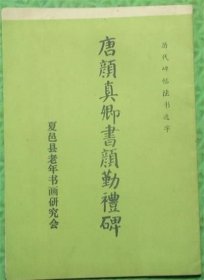 历代碑帖法书选字
唐顏真卿書顏勤禮碑
夏邑县老年书画研究会